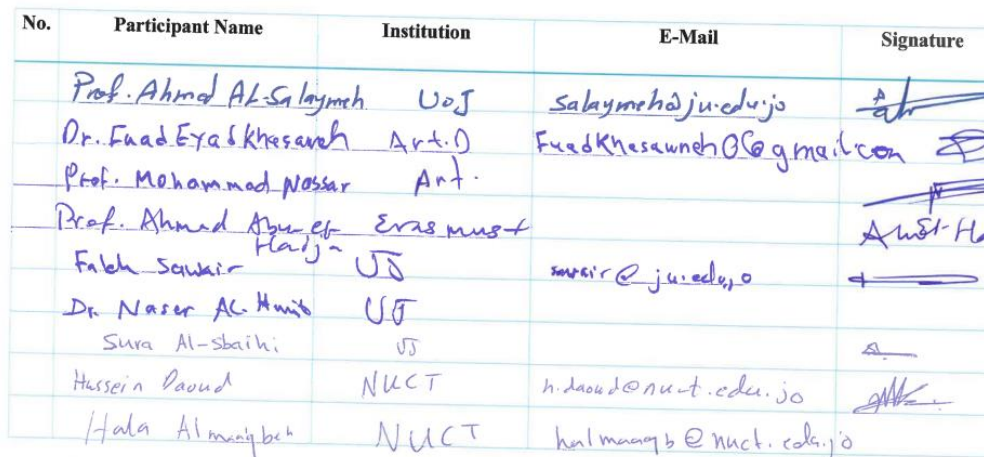 No. Participant Name Institution E-Mail Signature
Prof. Ahmad AL-Salaymeh UoJ salaymeh@ju.edu.jo
Dr. Fuad Eyad Khesawneh Art.D FuadKhesawneh06@gmail.com
Prof. Mohammad Nassar Art.
Prof. Ahmad Abu el Erasmus+
Haija
Faleh Sawair UJ sawair@ju.edu.jo
Dr. Naser AL- UJ
Sura Al-sbaihi UJ
Hussein Daoud NUCT h.daoud@nuct.edu.jo
Hala Almaaqbeh NUCT halmaaqb@nuct.edu.jo